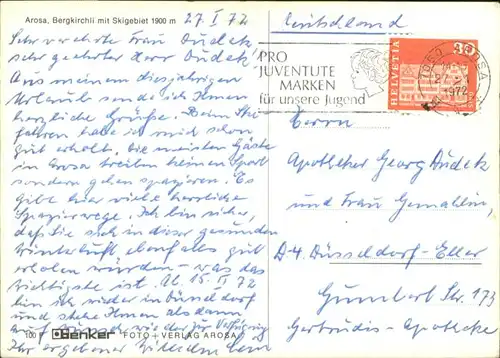 Arosa, Bergkirchli mit Skigebiet 1900 m
27. I 72
Sehr verehrte Frau Dudek,
sehr geehrter Herr Dudek!
Aus meinem diesjährigen
Urlaub sende ich Ihnen
herzliche Grüße. Beim Ski-
fahren habe ich mich schon
gut erholt. Die meisten Gäste
in Arosa treiben keinen Sport
sondern gehen spazieren. Es
gibt hier viele herrliche
Spazierwege. Ich bin sicher,
daß Sie sich in dieser gesunden
Winterluft ebenfalls gut
erholen würden – was das
wichtigste ist. Ab 15. II 72
bin ich wieder in Düsseldorf
und stehe Ihnen alsdann
auf wieder zur Verfügung
Ihr ergebener Wilhelm
100 Benker FOTO + VERLAG AROSA
Deutschland
PRO
JUVENTUTE
MARKEN
für unsere Jugend
HELVETIA
30
AROSA
1972
Herrn
Apotheker Georg Dudek
und Frau Gemahlin,
D-4 Düsseldorf-Eller
Gumbert Str. 173
Gertrudis-Apotheke